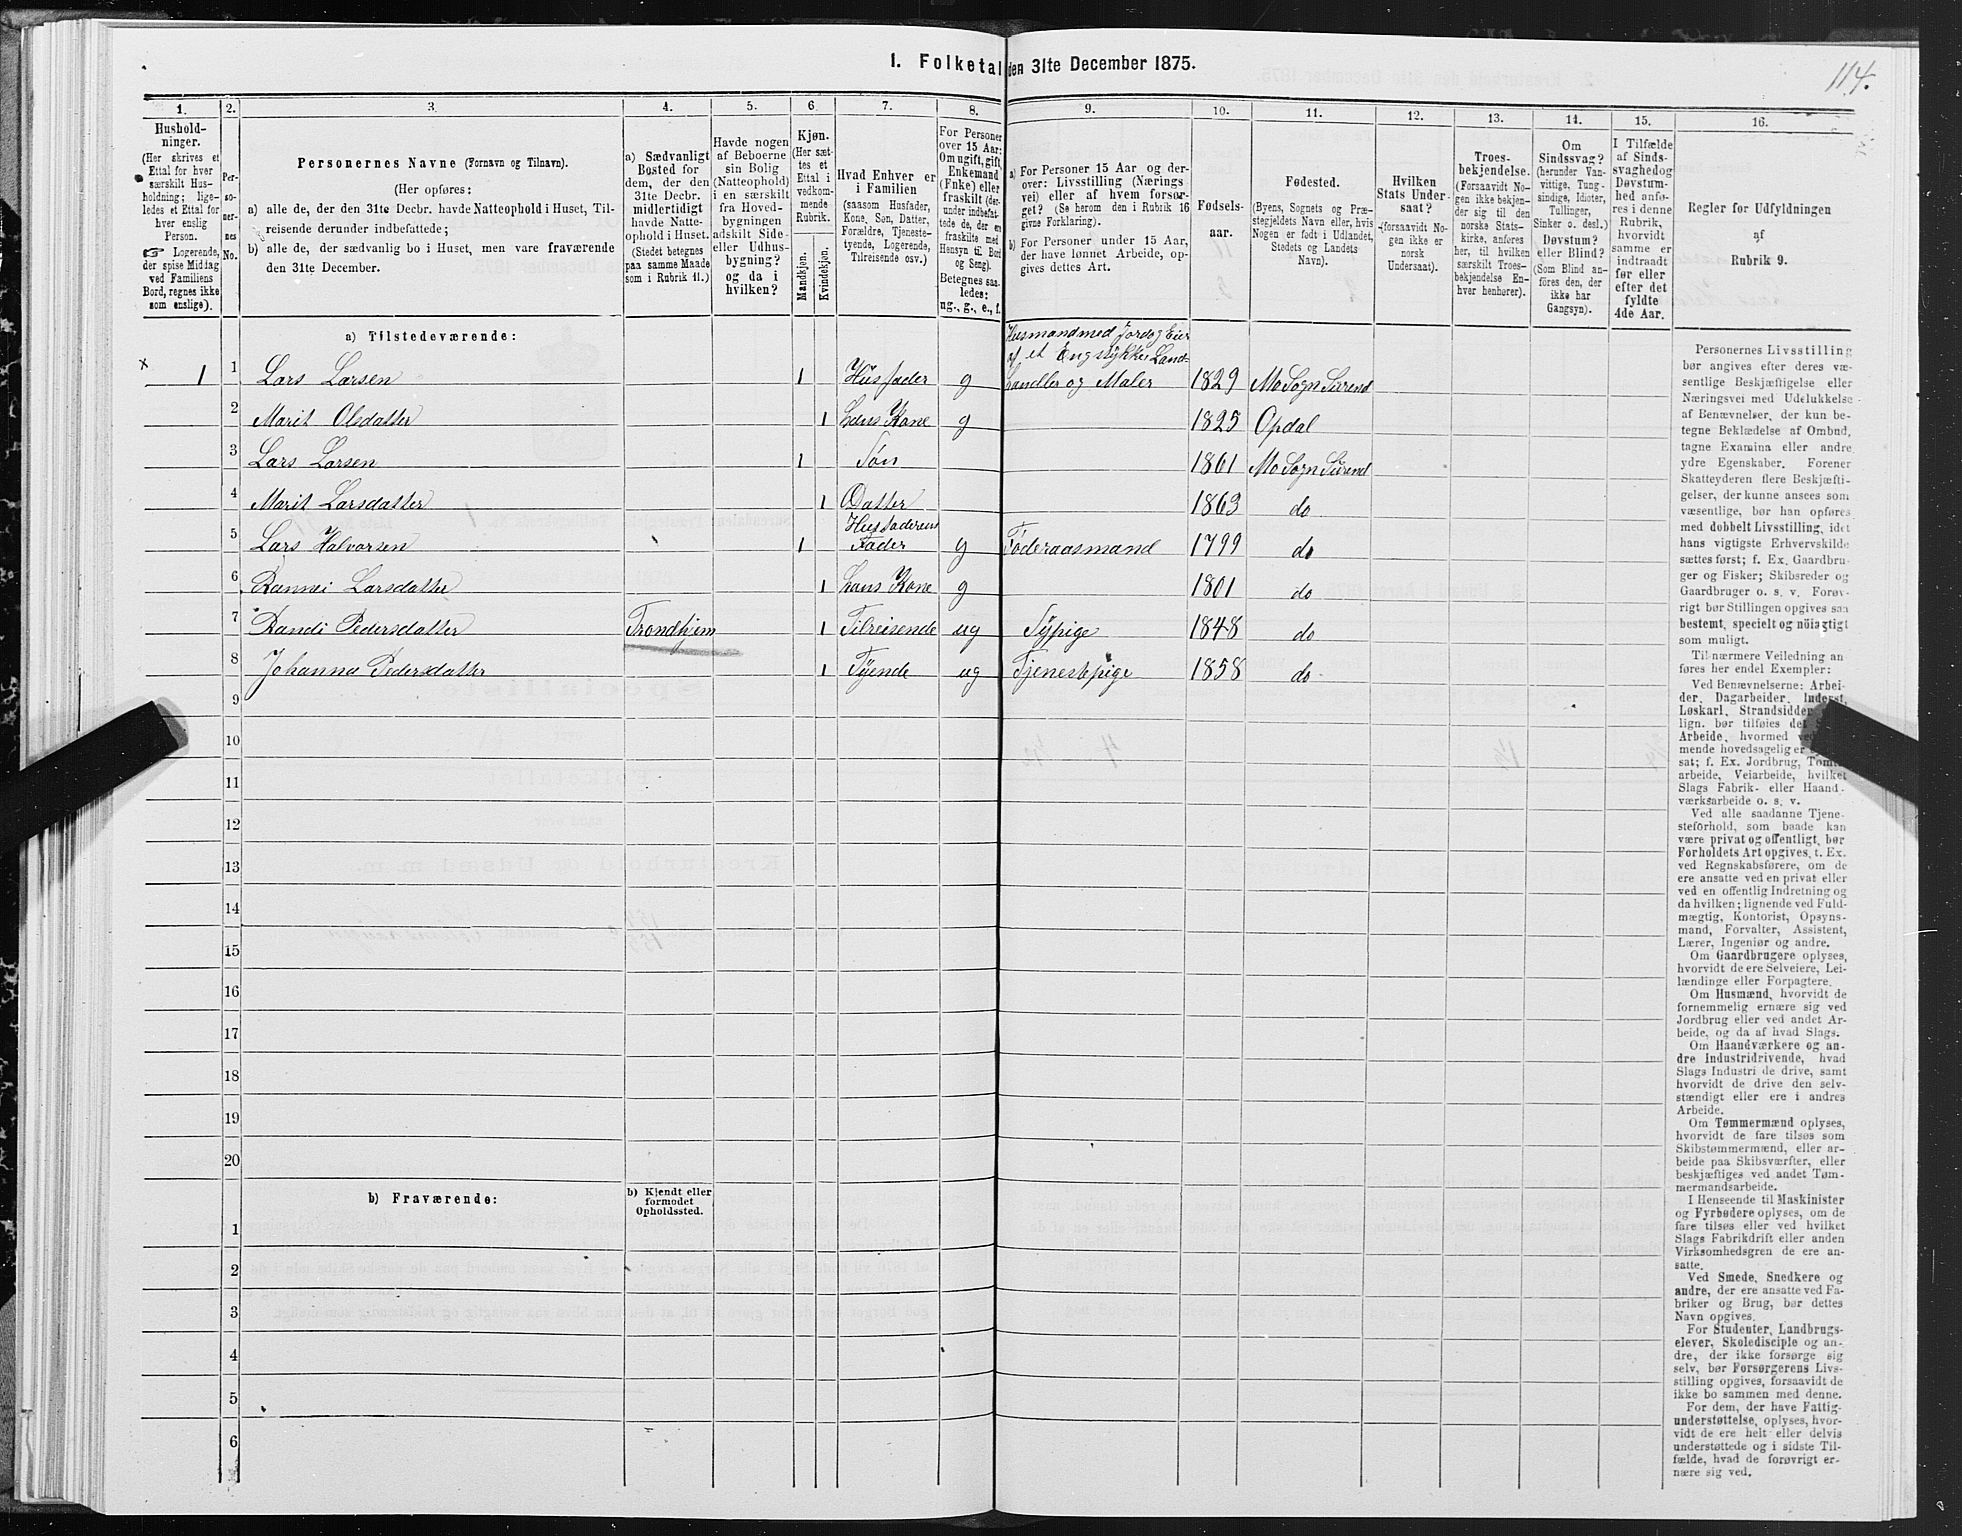 1. Folketal den 31te December 1875.
114.
1. 2. 3. 4. 5. 6. 7. 8. 9. 10. 11. 12. 13. 14. 15. 16.
Hushold-
ninger.
(Her skrives et
Ettal for hver
særskilt Hus-
holdning; lige-
ledes et Ettal for
hver enslig
Person.
☞ Logerende,
der spise Middag
ved Familiens
Bord, regnes ikke
som enslige).
Per-
so-
ner-
nes
No.
Personernes Navne (Fornavn og Tilnavn).
(Her opføres:
a) alle de, der den 31te Decbr. havde Natteophold i Huset, Til-
reisende derunder indbefattede;
b) alle de, der sædvanlig bo i Huset, men vare fraværende
den 31te December.
a) Sædvanligt
Bosted for
dem, der den
31te Decbr.
midlertidigt
havde Natte-
ophold i Huset.
(Stedet betegnes
paa samme Maade
som i Rubrik 11.)
Havde nogen
af Beboerne
sin Bolig
(Natteophold)
i en særskilt
fra Hoved-
bygningen
adskilt Side-
eller Udhus-
bygning?
og da i
hvilken?
Kjøn.
(Her sæt-
tes et
Ettal i
vedkom-
mende
Rubrik.
Mandkjøn.
Kvindekjøn.
Hvad Enhver er
i Familien
(saasom Husfader,
Kone, Søn, Datter,
Forældre, Tjeneste-
tyende, Logerende,
Tilreisende osv.)
For Personer
over 15 Aar:
Om ugift, gift,
Enkemand
(Enke) eller
fraskilt (der-
under indbefat-
tede de, der ere
fraskilte med
Hensyn til Bord
og Seng).
Betegnes saa-
ledes:
ug., g., e., f.
a) For Personer 15 Aar og der-
over: Livsstilling (Nærings
vei) eller af hvem forsør-
get? (Se herom den i Rubrik 16
givne Forklaring).
b) For Personer under 15 Aar,
der have lønnet Arbeide, op-
gives dettes Art.
Fødsels-
aar.
Fødested.
(Byens, Sognets og Præ-
stegjeldets Navn eller, hvis
Nogen er født i Udlandet,
Stedets og Landets
Navn).
Hvilken
Stats Under-
saat?
(forsaavidt No-
gen ikke er
norsk
Undersaat).
Troes-
bekjendelse.
(Forsaavidt No-
gen ikke bekjen-
der sig til den
norske Stats-
kirke, anføres
her, til hvilken
særskilt Troes-
bekjendelse En-
hver henhører).
Om
Sindssvag?
(herunder Van-
vittige, Tung-
sindige, Idioter,
Tullinger,
Sinker o. desl.)
Døvstum?
eller Blind?
(Som Blind an-
føres den, der
ikke har
Gangsyn).
I Tilfælde
af Sinds-
svaghed og
Døvstum-
hed anfø-
res i denne
Rubrik,
hvorvidt
samme er
indtraadt
før eller
efter det
fyldte
4de Aar.
Regler for Udfyldningen
af
Rubrik 9.
a) Tilstedeværende:
Husmand med Jord og Eier
af et Engstykke Land-
× 1 1 Lars Larsen 1 Husfader g handler og Maler 1829 Mo Sogn Surend
2 Marit Olsdatter 1 hans Kone g 1825 Opdal
3 Lars Larsen 1 Søn 1861 Mo Sogn Surend
4 Marit Larsdatter 1 Datter 1863 do
Husfaderens
5 Lars Halvorsen 1 Fader g Føderaasmand 1799 do
6 Rannei Larsdatter 1 hans Kone g 1801 do
7 Randi Pedersdatter Trondhjem 1 Tilreisende ug Sypige 1848 do
8 Johanna Pedersdatter 1 Tyende ug Tjenestepige 1858 do
9
10
11
12
13
14
15
16
17
18
19
20
b) Fraværende:
b) Kjendt eller
formodet
Opholdssted.
1
2
3
4
5
6
Personernes Livsstilling
bør angives efter deres væ-
sentlige Beskjæftigelse eller
Næringsvei med Udelukkelse
af Benævnelser, der kun be-
tegne Beklædelse af Ombud,
tagne Examina eller andre
ydre Egenskaber. Forener
Skatteyderen flere Beskjæfti-
gelser, der kunne ansees som
væsentlige, bør han opføres
med dobbelt Livsstilling, idet
hans vigtigste Erhvervskilde
sættes først; f. Ex. Gaardbru-
ger og Fisker; Skibsreder og
Gaardbruger o. s. v. Forøv-
rigt bør Stillingen opgives saa
bestemt, specielt og nøiagtigt
som muligt.
Til nærmere Veiledning an
føres her endel Exempler:
Ved Benævnelserne: Arbei-
der, Dagarbeider, Inderst,
Løskarl, Strandsidder
lign. bør tilføies det
Arbeide, hvormed
mende hovedsagelig er
sat; f. Ex. Jordbrug,
arbeide, Veiarbeide, hvilket
Slags Fabrik- eller Haand-
værksarbeide o. s. v.
Ved alle saadanne Tjene-
steforhold, som baade kan
være privat og offentligt, bør
Forholdets Art opgives, t. Ex.
ved Regnskabsførere, om de
ere ansatte ved en privat eller
ved en offentlig Indretning og
da hvilken; lignende ved Fuld-
mægtig, Kontorist, Opsyns-
mand, Forvalter, Assistent,
Lærer, Ingeniør og andre.
Om Gaardbrugere oplyses,
hvorvidt de ere Selveiere, Lei-
lændinge eller Forpagtere.
Om Husmænd, hvorvidt de
fornemmelig ernære sig ved
Jordbrug eller ved andet Ar-
beide, og da af hvad Slags.
Om Haandværkere og an-
dre Industridrivende, hvad
Slags Industri de drive, samt
hvorvidt de drive den selv-
stændigt eller ere i andres
Arbeide.
Om Tømmermænd oplyses,
hvorvidt de fare tilsøs som
Skibstømmermænd, eller ar-
beide paa Skibsværfter, eller
beskjæftiges ved andet Tøm-
mermandsarbeide.
I Henseende til Maskinister
og Fyrbødere oplyses, om de
fare tilsøs eller ved hvilket
Slags Fabrikdrift eller anden
Virksomhedsgren de ere an-
satte.
Ved Smede, Snedkere og
andre, der ere ansatte ved Fa-
briker og Brug, bør dettes
Navn opgives.
For Studenter, Landbrugs-
elever, Skoledisciple og an-
dre, der ikke forsørge sig
selv, bør Forsørgerens Livs-
stilling opgives, forsaavidt de
ikke bo sammen med denne.
For dem, der have Fattig-
understøttelse, oplyses, hvor-
vidt de ere helt eller delvis
understøttede og i sidste Til-
fælde, hvad de forøvrigt er-
nære sig ved.